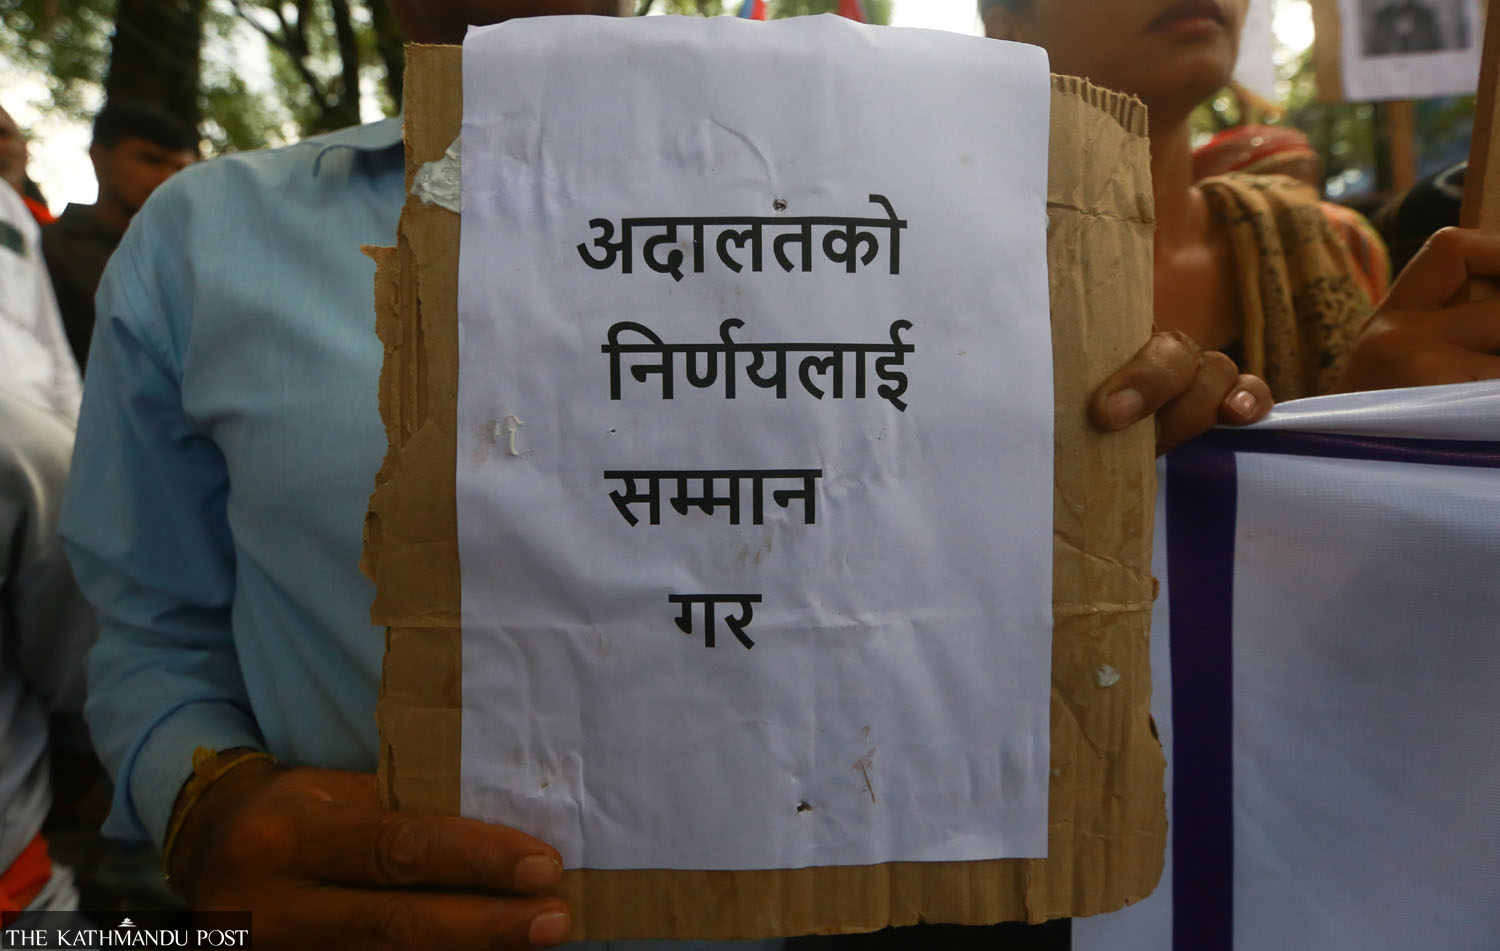 अदालतको
निर्णयलाई
सम्मान
गर
THE KATHMANDU POST